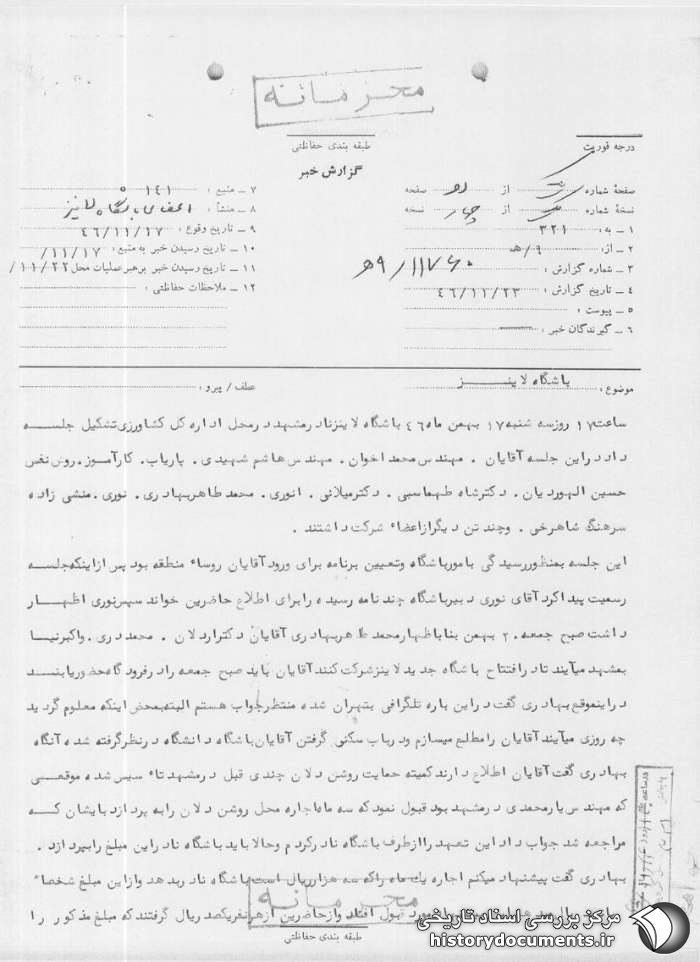 محرمانه
درجه فوریت
طبقه بندی حفاظتی
گزارش خبر
صفحهٔ شماره یک از دو صفحه
نسخهٔ شماره یک از چهار نسخه
۱ ـ به: ۳۲۱
۲ ـ از: ۹/هـ
۳ ـ شماره گزارش: ۱۱۷۶۰/۹هـ
۴ ـ تاریخ گزارش: ۴۶/۱۱/۲۳
۵ ـ پیوست:
۶ ـ گیرندگان خبر:
۷ ـ منبع: ۱۴۱
۸ ـ منشأ: اعضای باشگاه لاینز
۹ ـ تاریخ وقوع: ۴۶/۱۱/۱۷
۱۰ ـ تاریخ رسیدن خبر به منبع: ۱۱/۱۷/
۱۱ ـ تاریخ رسیدن خبر برهبر عملیات محل ۱۱/۲۲/
۱۲ ـ ملاحظات حفاظتی:
موضوع: باشگاه لاینز
عطف / پیرو:
ساعت ۱۷ روز سه شنبه ۱۷ بهمن ماه ۴۶ باشگاه لاینز نادر مشهد در محل اداره کل کشاورزی تشکیل جلسه
داد در این جلسه آقایان . مهندس محمد اخوان . مهندس هاشم شهیدی . پاریاب . کارآموز . روش نفس
حسین الهوردیان . دکتر شاه طهماسبی . دکتر میلانی . انوری . محمد طاهر بهادری . نوری . منشی زاده
سرهنگ شاهرخی . وچند تن دیگر از اعضاء شرکت داشتند .
این جلسه بمنظور رسیدگی بامور باشگاه وتعیین برنامه برای ورود آقایان روساء منطقه بود پس از اینکه جلسه
رسمیت پیدا کرد آقای نوری دبیر باشگاه چند نامه رسیده را برای اطلاع حاضرین خواند سپس نوری اظهار
داشت صبح جمعه ۲۰ بهمن بنا باظهار محمد طاهر بهادری آقایان دکتر اردلان . محمد دری . واکبرنیا
بمشهد میآیند تا در افتتاح باشگاه جدید لاینز شرکت کنند آقایان باید صبح جمعه را در فرودگاه حضور یابنـد
در اینموقع بهادری گفت در این باره تلگرافی بتهران شده منتظر جواب هستم البته بمحض اینکه معلوم گردید
چه روزی میآیند آقایان را مطلع میسازم ودر باب سکنی گرفتن آقایان باشگاه دانشگاه در نظر گرفته شده آنگاه
بهادری گفت آقایان اطلاع دارند کمیته حمایت روشن دلان چندی قبل در مشهد تاءسیس شده موقعـی
که مهندس یارمحمدی در مشهد بود قبول نمود که سه ماه اجاره محل روشن دلان را به پردازد بایشان کـه
مراجعه شد جواب داد این تعهد را از طرف باشگاه نادر کردم وحالا باید باشگاه نادر این مبلغ را بپردازد .
بهادری گفت پیشنهاد میکنم اجاره یك ماه را که سه هزار ریال است باشگاه نادر بدهد واز این مبلغ شخصاً
مورد قبول افتاد واز حاضرین از هر نفر یکصد ریال گرفتند که مبلغ مذکور را
محرمانه
طبقه بندی حفاظتی
مرکز بررسی اسناد تاریخی
historydocuments.ir